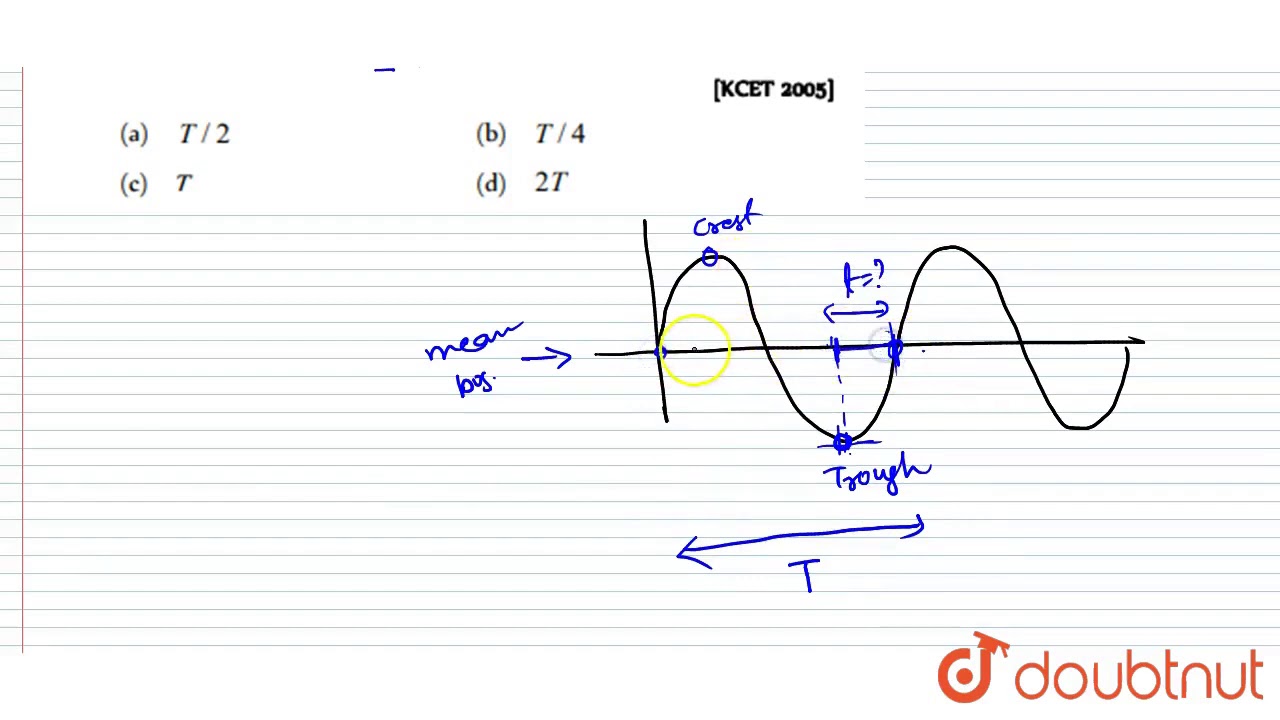 [KCET 2005]
(a) T / 2 (b) T / 4
(c) T (d) 2T
Crest
t=?
mean
pos.
Trough
T
doubtnut